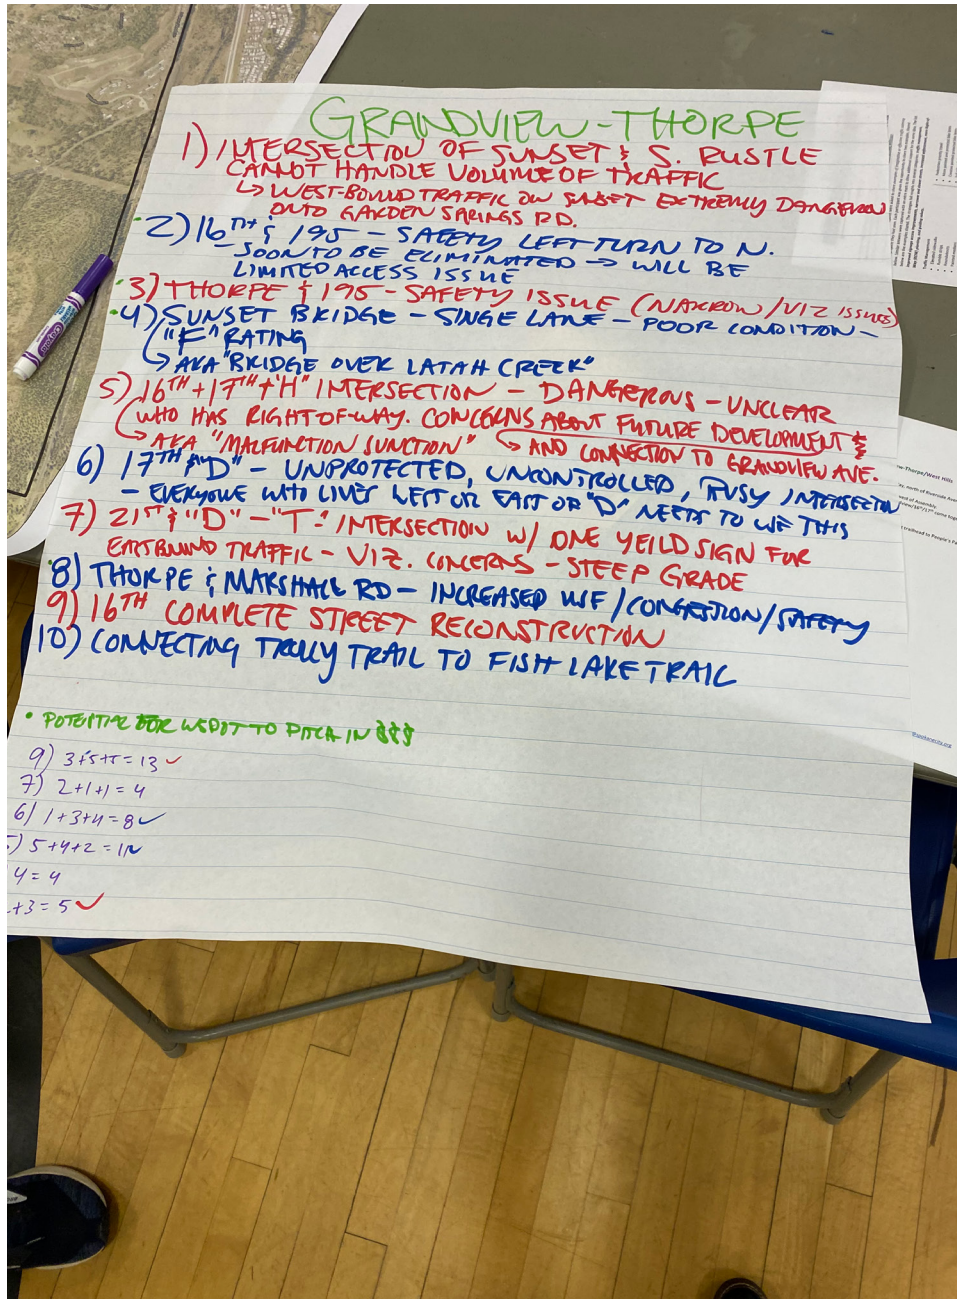 GRANDVIEW-THORPE
1) INTERSECTION OF SUNSET & S. RUSTLE
CANNOT HANDLE VOLUME OF TRAFFIC
↳ WEST-BOUND TRAFFIC ON SUNSET EXTREMLY DANGEROUS
ONTO GARDEN SPRINGS RD.
• 2) 16TH & 195 – SAFETY LEFT TURN TO N.
– SOON TO BE ELIMINATED → WILL BE
LIMITED ACCESS ISSUE
• 3) THORPE & 195 – SAFETY ISSUE (NARROW/VIZ ISSUES)
• 4) SUNSET BRIDGE – SINGE LANE – POOR CONDITION –
"F" RATING
↳ AKA "BRIDGE OVER LATAH CREEK"
5) 16TH + 17TH + "H" INTERSECTION – DANGEROUS – UNCLEAR
WHO HAS RIGHT-OF-WAY. CONCERNS ABOUT FUTURE DEVELOPMENT &
↳ AKA "MALFUNCTION JUNCTION" ↳ AND CONNECTION TO GRANDVIEW AVE.
6) 17TH & "D" – UNPROTECTED, UNCONTROLLED, BUSY INTERSECTION
– EVERYONE WHO LIVES WEST OR EAST OF "D" NEEDS TO USE THIS
7) 21ST & "D" – "T-" INTERSECTION W/ ONE YEILD SIGN FOR
EASTBOUND TRAFFIC – VIZ. CONCERNS – STEEP GRADE
• 8) THORPE & MARSHALL RD – INCREASED USE/CONGESTION/SAFETY
9) 16TH COMPLETE STREET RECONSTRUCTION
10) CONNECTING TROLLY TRAIL TO FISH LAKE TRAIL
• POTENTIAL FOR WSDOT TO PITCH IN $$$
9) 3+5+5=13 ✓
7) 2+1+1=4
6) 1+3+4=8 ✓
) 5+4+2=11 ✓
4=4
+3=5 ✓
Crayola
ew-Thorpe/West Hills
north of Riverside Aven
trailhead to People's Pa